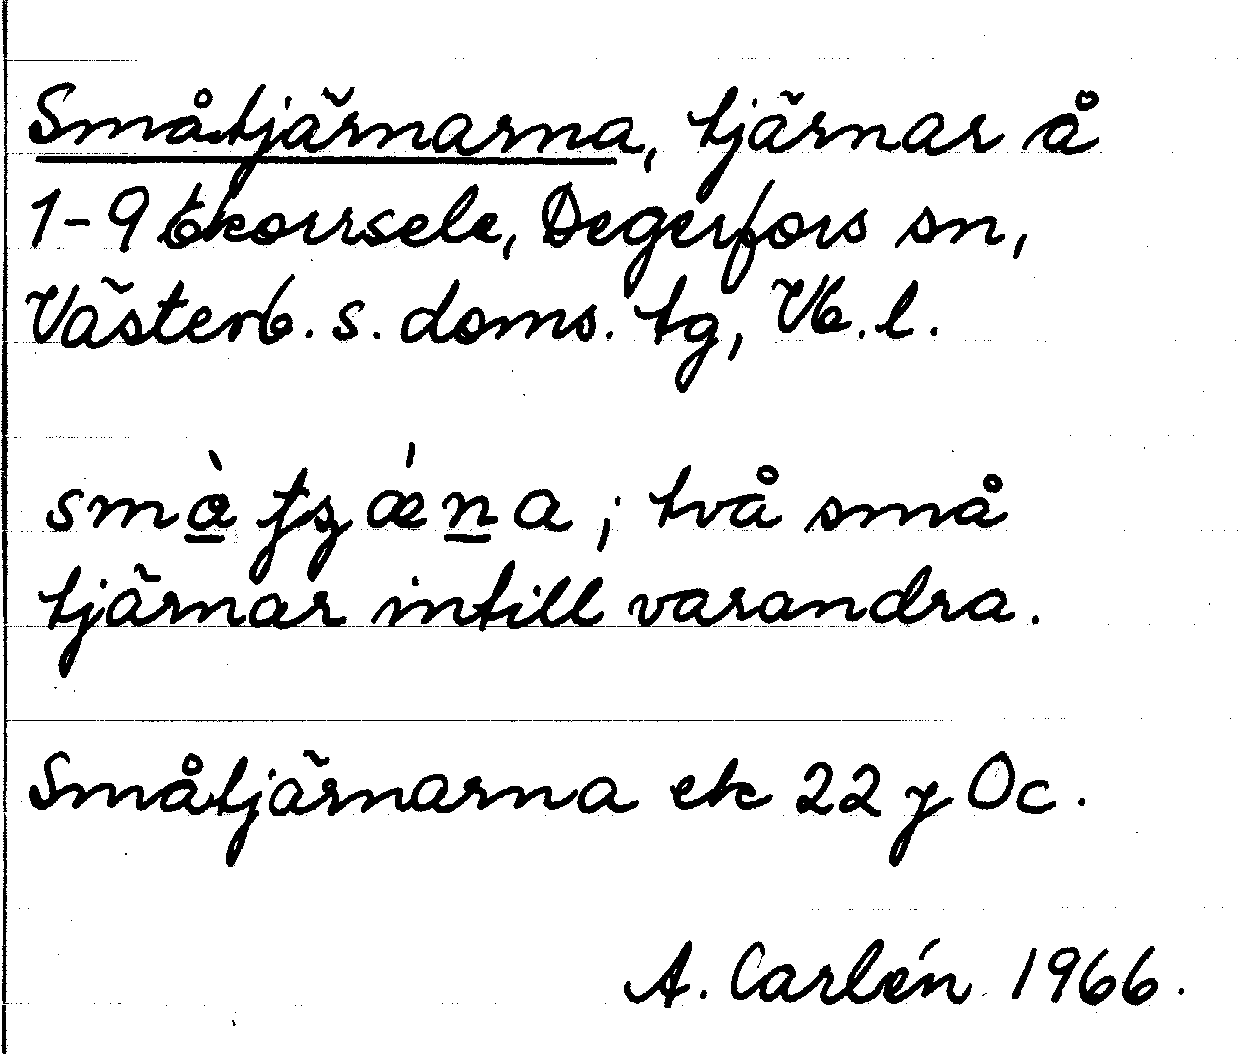 Småtjärnarna, tjärnar å
1-9 Ekorrsele, Degerfors sn,
Västerb. s. doms. tg, Vb. l.
två små
tjärnar intill varandra.
Småtjärnarna ek 22 y Oc.
A. Carlén 1966.